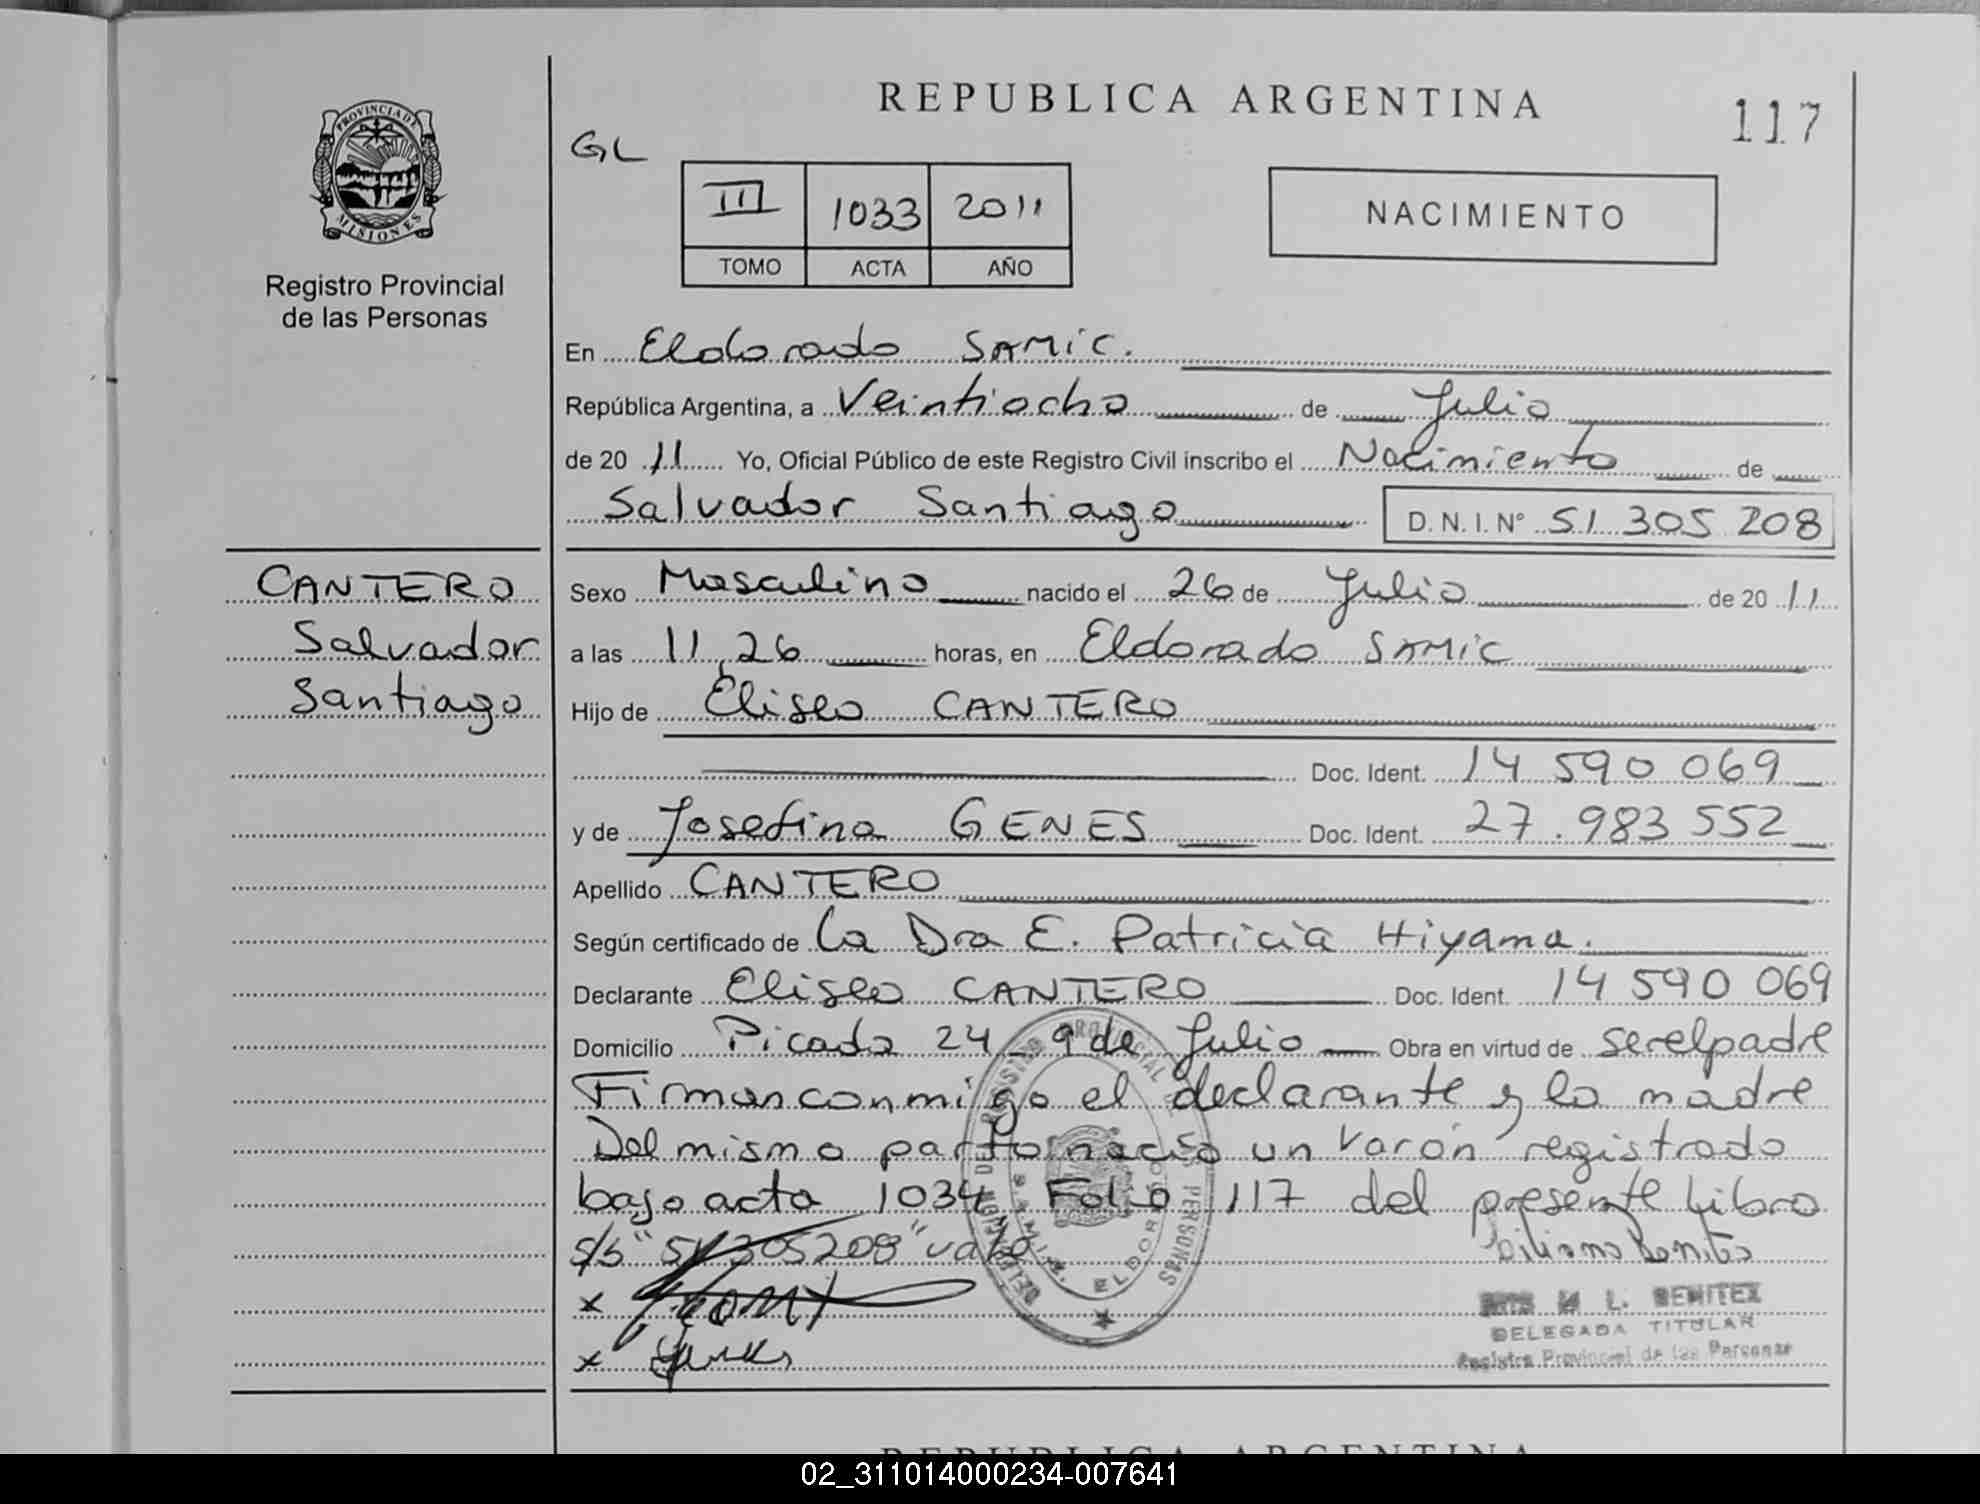 REPUBLICA ARGENTINA
117
PROVINCIA DE
MISIONES
Registro Provincial
de las Personas
GL
III 1033 2011
TOMO ACTA AÑO
NACIMIENTO
En Eldorado SAMIC.
República Argentina, a Veintiocho de Julio
de 2011 Yo, Oficial Público de este Registro Civil inscribo el Nacimiento de
Salvador Santiago D.N.I. Nº 51 305 208
CANTERO
Salvador
Santiago
Sexo Masculino nacido el 26 de Julio de 2011
a las 11,26 horas, en Eldorado SAMIC
Hijo de Eliseo CANTERO
Doc. Ident. 14 590 069
y de Josefina GENES Doc. Ident. 27.983 552
Apellido CANTERO
Según certificado de La Dra E. Patricia Hiyama.
Declarante Eliseo CANTERO Doc. Ident. 14 590 069
Domicilio Picada 24 - 9 de Julio Obra en virtud de ser el padre
Firman conmigo el declarante y la madre
Del mismo parto nació un varón registrado
bajo acta 1034 Folio 117 del presente Libro
s/b "51 305 208" vale
x
x
L. BENITEZ
DELEGADA TITULAR
Registro Provincial de las Personas
REPUBLICA ARGENTINA
02_311014000234-007641